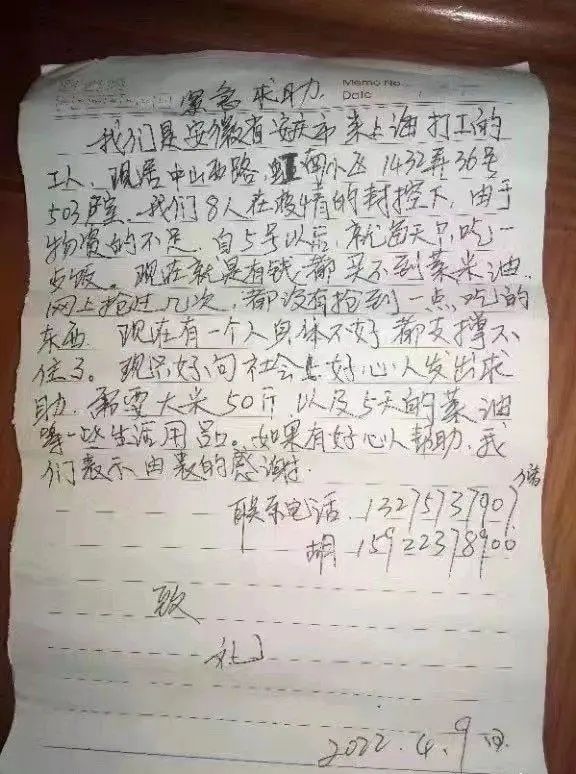 Memo No.
Date
紧急求助
我们是安徽省安庆市来上海打工的
工人、现居中山西路 虹南小区 1432弄36号
503室、我们8人在疫情的封控下,由于
物资的不足,自5号以后,就每天只吃一
步饭。现在就是有钱都买不到菜米油.
网上抢过几次,都没有抢到一点吃的
东西 现在有一个人身体不好都支撑不
住了。现只好向社会上好心人发出求
助,需要大米50斤,以及5天的菜油
等一些生活用品。如果有好心人帮助.我
们表示由衷的感谢.
联系电话.13275737907 储
胡 15922378900
致
礼
2022.4.9日.